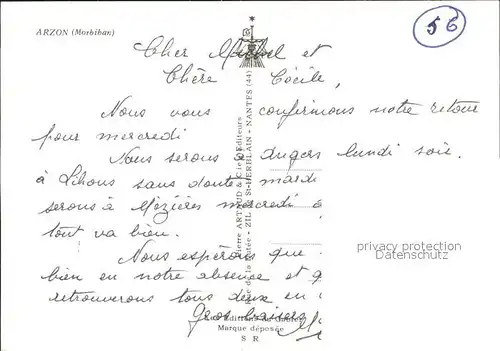 ARZON (Morbihan)
56
Cher Michel et
Chère Cécile,
Nous vous confirmons notre retour
pour mercredi
Nous serons à Angers lundi soir.
à Lihons sans doute mardi
serons à Mézières mercredi
tout va bien.
Nous espérons que
bien en notre absence et
retrouverons tous deux en
Gros baisers
ARTAUD & Cie Editeurs
ZIL de St-HERBLAIN - NANTES (44)
Les Editions du Gabier
Marque déposée
S R
privacy protection
Datenschutz